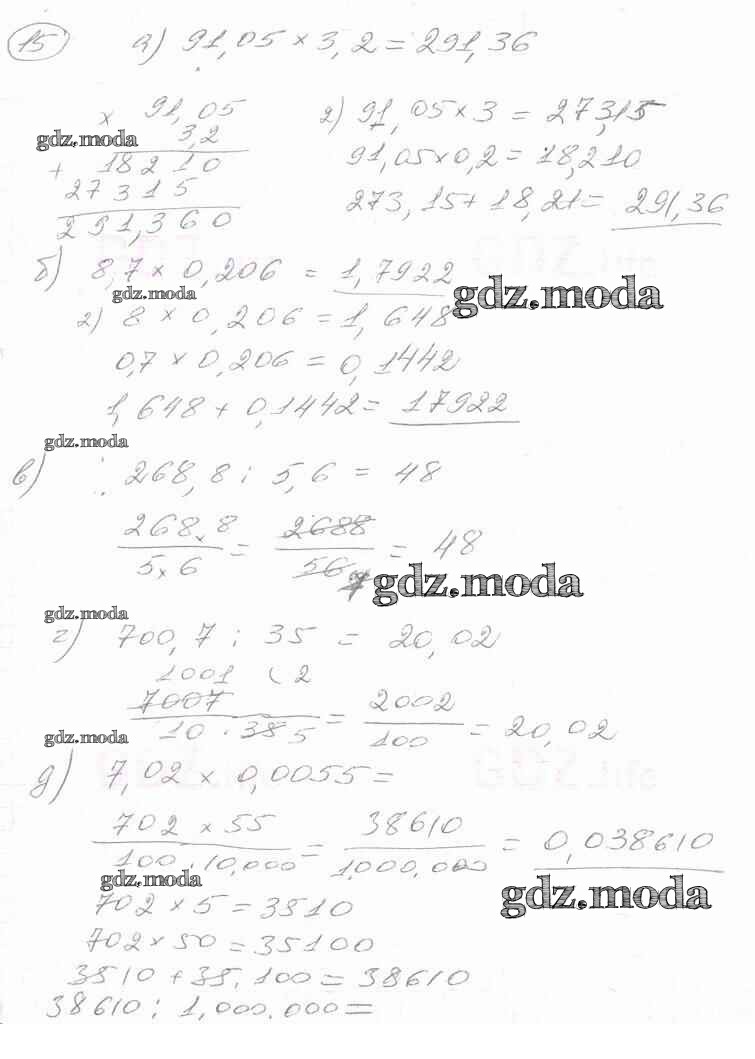 15 а) 91,05 × 3,2 = 291,36
× 91,05
3,2
+ 18210
27315
291,360
2) 91,05 × 3 = 273,15
91,05 × 0,2 = 18,210
273,15 + 18,21 = 291,36
gdz.moda
б) 8,7 × 0,206 = 1,7922
gdz.moda
gdz.moda
2) 8 × 0,206 = 1,648
0,7 × 0,206 = 0,1442
1,648 + 0,1442 = 17922
gdz.moda
в) 268,8 : 5,6 = 48
268,8 / 5,6 = 2688 / 56 = 48
gdz.moda
gdz.moda
г) 700,7 : 35 = 20,02
1001 (2
7007 / 10 · 35 5 = 2002 / 100 = 20,02
gdz.moda
GDZ.life
GDZ.life
д) 7,02 × 0,0055 =
702 × 55 / 100 · 10,000 = 38610 / 1,000,000 = 0,038610
gdz.moda
gdz.moda
702 × 5 = 3510
702 × 50 = 35100
3510 + 35,100 = 38610
38610 : 1,000,000 =